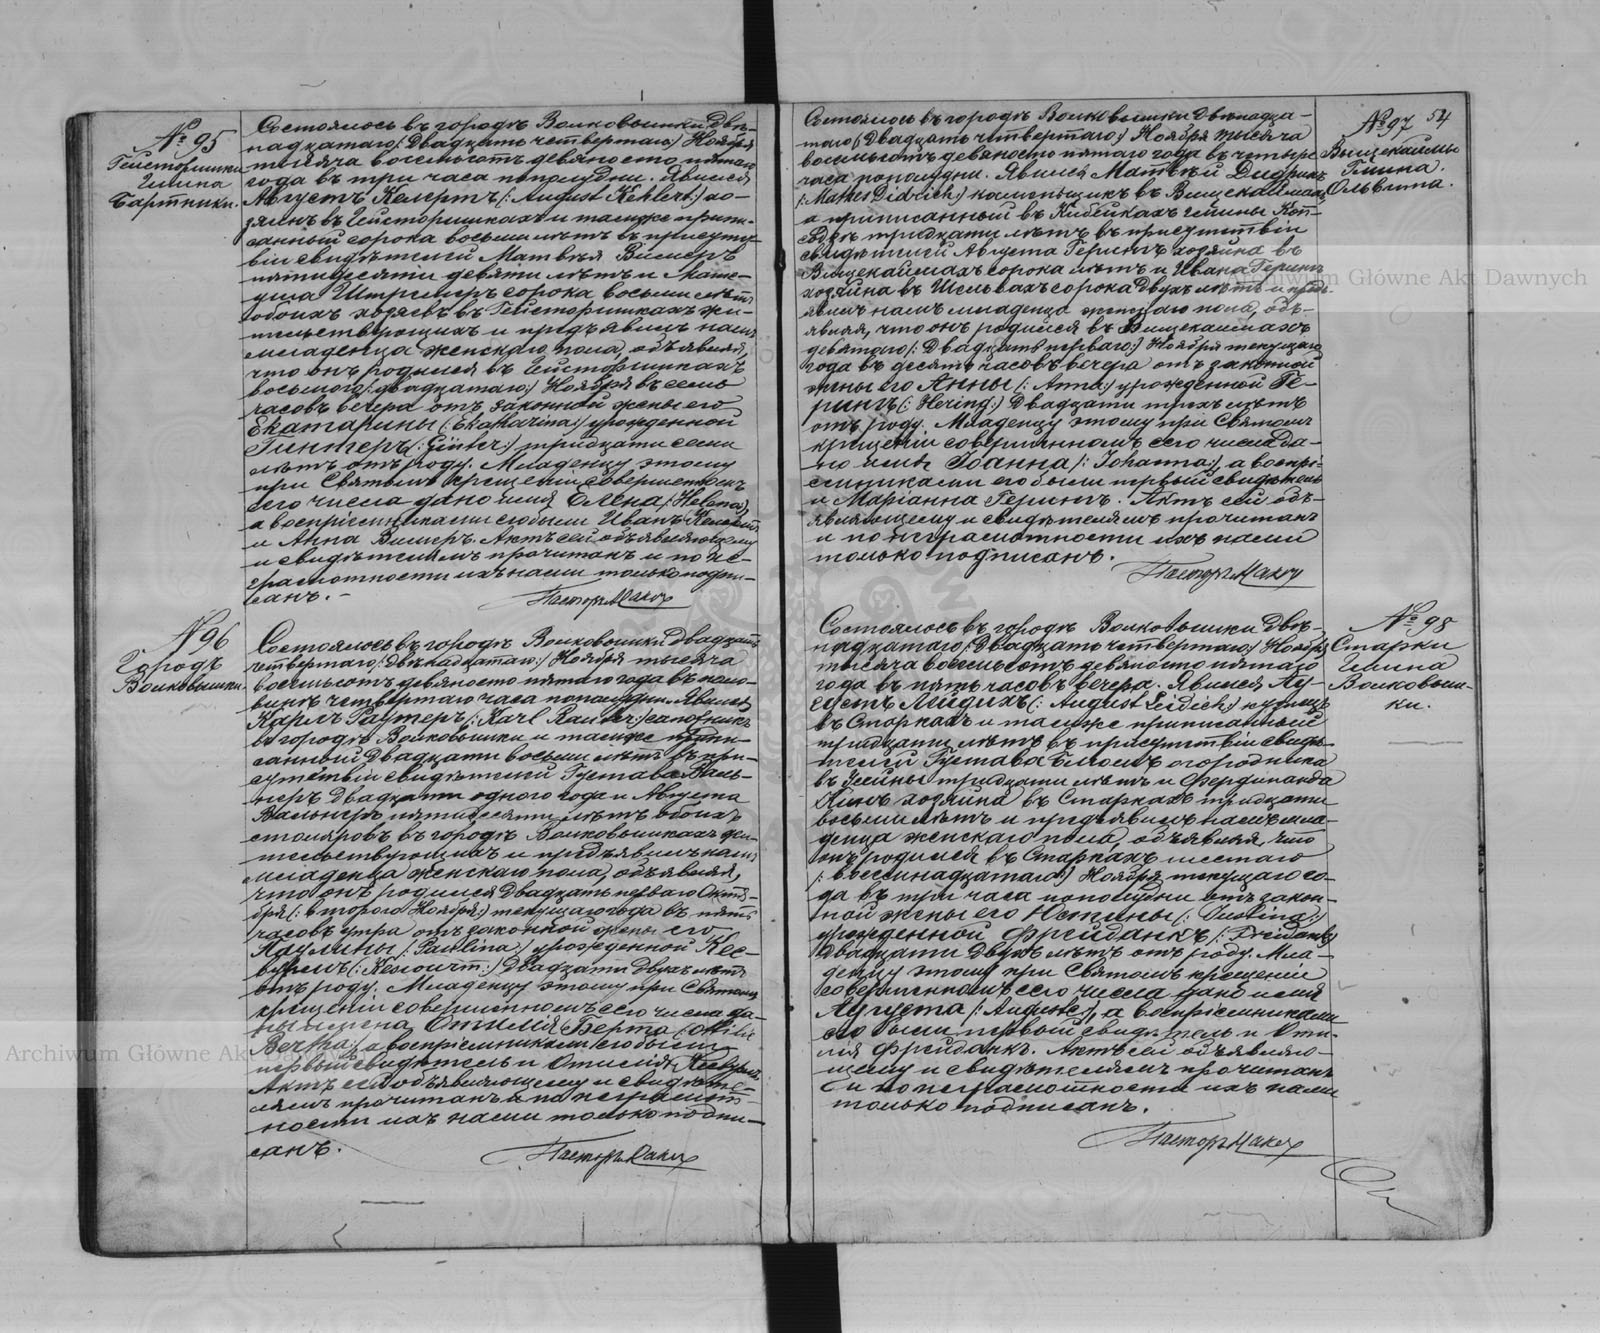 № 95
Гейсторишки
Гмина
Бартники.
Состоялось въ городѣ Волковышки двѣ-
надцатаго /: Двадцать четвертаго:/ Ноября
тысяча восемьсотъ девяносто пятаго
года въ три часа пополудни. Явился
Августъ Келертъ /: August Kehlert:/ хо-
зяинъ въ Гейсторишкахъ и тамъже припи-
санный сорока восьми лѣтъ въ присутст-
віи свидѣтелей Матвѣя Вимеръ
пятидесяти девяти лѣтъ и Мате-
уша Штремеръ сорока восьми лѣтъ
обоихъ хозяевъ въ Гейсторишкахъ жи-
тельствующихъ и предъявилъ намъ
младенца женскаго пола, объявляя,
что онъ родился въ Гейсторишкахъ
восьмого /: двадцатаго:/ Ноября въ семь
часовъ вечера отъ законной жены его
Екатарины /: Ekatharina:/ урожденной
Гинтеръ /: Günter:/ тридцати семи
лѣтъ отъ роду. Младенцу этому
при Святомъ крещеніи совершенномъ
сего числа дано имя Елена /: Helena:/
а воспріемниками его были Иванъ Келертъ
и Анна Вимеръ. Актъ сей объявляющему
и свидѣтелямъ прочитанъ и по не-
грамотности ихъ нами только подпи-
санъ. -
Пасторъ
№ 96
Городъ
Волковышки.
Состоялось въ городѣ Волковышки двадцать
четвертаго /: Двѣнадцатаго:/ Ноября тысяча
восемьсотъ девяносто пятаго года въ поло-
винѣ четвертаго часа пополудни. Явился
Карлъ Раутеръ /: Karl Rauter:/ сапожникъ
въ городѣ Волковышки и тамъже припи-
санный двадцати восьми лѣтъ въ при-
сутствіи свидѣтелей Густава Валь-
неръ двадцати одного года и Августа
Вальнеръ пятидесяти лѣтъ обоихъ
столяровъ въ городѣ Волковышкахъ жи-
тельствующихъ и предъявилъ намъ
младенца женскаго пола, объявляя,
что онъ родился двадцать перваго Октя-
бря /: второго Ноября:/ текущаго года въ пять
часовъ утра отъ законной жены его
Паулины /: Paulina:/ урожденной Кес-
двадцати двухъ лѣтъ
отъ роду. Младенцу этому при Святомъ
крещеніи совершенномъ сего числа да-
ны имена Отилія Берта /: Otilie
Bertha:/ а воспріемниками его были
первый свидѣтель и Отилія
Актъ сей объявляющему и свидѣте-
лямъ прочитанъ и по неграмот-
ности ихъ нами только подпи-
санъ.
Пасторъ
№ 97
54
Вылускаймы
Гмина
Ольвита.
Состоялось въ городѣ Волковышки двѣнадца-
таго /: Двадцать четвертаго:/ Ноября тысяча
восемьсотъ девяносто пятаго года въ четыре
часа пополудни. Явился Матвѣй Дидрихъ
/: Mathes Didrich:/ каменьщикъ въ
а приписанный въ Кибейкахъ гмины Коп-
тридцати лѣтъ въ присутствіи
свидѣтелей Августа Герингъ хозяина въ
сорока лѣтъ и Ивана Герингъ
хозяина въ Шельвахъ сорока двухъ лѣтъ и предъ-
явилъ намъ младенца женскаго пола, объ-
являя, что онъ родился въ
девятаго /: Двадцать перваго:/ Ноября текущаго
года въ десять часовъ вечера отъ законной
жены его Анны /: Anna:/ урожденной Ге-
рингъ /: Hering:/ двадцати трехъ лѣтъ
отъ роду. Младенцу этому при Святомъ
крещеніи совершенномъ сего числа да-
но имя Іоанна /: Johanna:/, а воспрі-
емниками его были первый свидѣтель
и Маріанна Герингъ. Актъ сей объ-
являющему и свидѣтелямъ прочитанъ
и по неграмотности ихъ нами
только подписанъ.
Пасторъ
№ 98
Старки
Гмина
Волковыш-
ки.
Состоялось въ городѣ Волковышки двѣ-
надцатаго /: Двадцать четвертаго:/ Ноября
тысяча восемьсотъ девяносто пятаго
года въ пять часовъ вечера. Явился Ав-
густъ Лейдихъ /: August Leidich:/ кузнецъ
въ Старкахъ и тамъже приписанный
тридцати лѣтъ въ присутствіи свидѣ-
телей Густава огородника
въ тридцати лѣтъ и Фердинанда
Кинъ хозяина въ Старкахъ тридцати
восьми лѣтъ и предъявилъ намъ мла-
денца женскаго пола, объявляя, что
онъ родился въ Старкахъ шестаго
/: восемнадцатаго:/ Ноября текущаго го-
да въ три часа пополудни отъ закон-
ной жены его Юстины /: Justina:/
урожденной Фрейданкъ /: Freidank:/
двадцати двухъ лѣтъ отъ роду. Мла-
денцу этому при Святомъ крещеніи
совершенномъ сего числа дано имя
Августа /: Auguste:/, а воспріемниками
его были первый свидѣтель и Оти-
лія Фрейданкъ. Актъ сей объявляю-
щему и свидѣтелямъ прочитанъ
и по неграмотности ихъ нами
только подписанъ.
Пасторъ
Archiwum Główne Akt Dawnych
Archiwum Główne Akt Dawnych